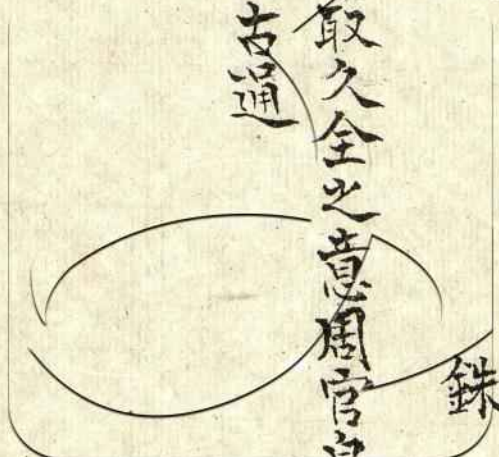 銖
取久全之意周官泉
古通